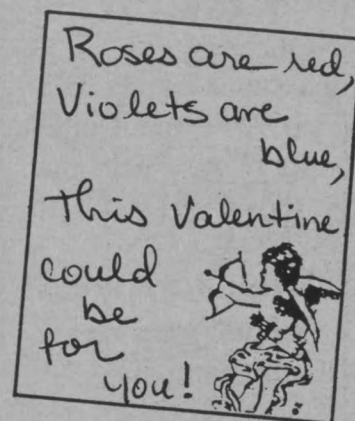 Roses are red,
Violets are
blue,
This Valentine
could
be
for
you!